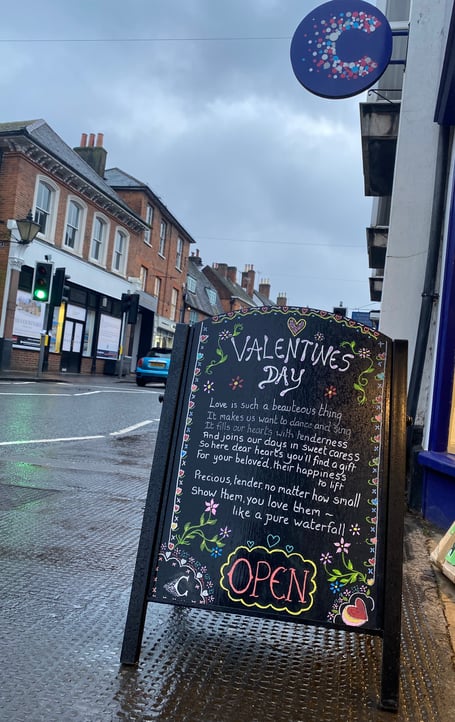 C
VALENTINES
DAY
Love is such a beauteous thing
It makes us want to dance and sing
It fills our hearts with tenderness
And joins our days in sweet caress
So here dear hearts you'll find a gift
For your beloved, their happiness
to lift
Precious, tender, no matter how small
Show them, you love them ~
like a pure waterfall
OPEN
C